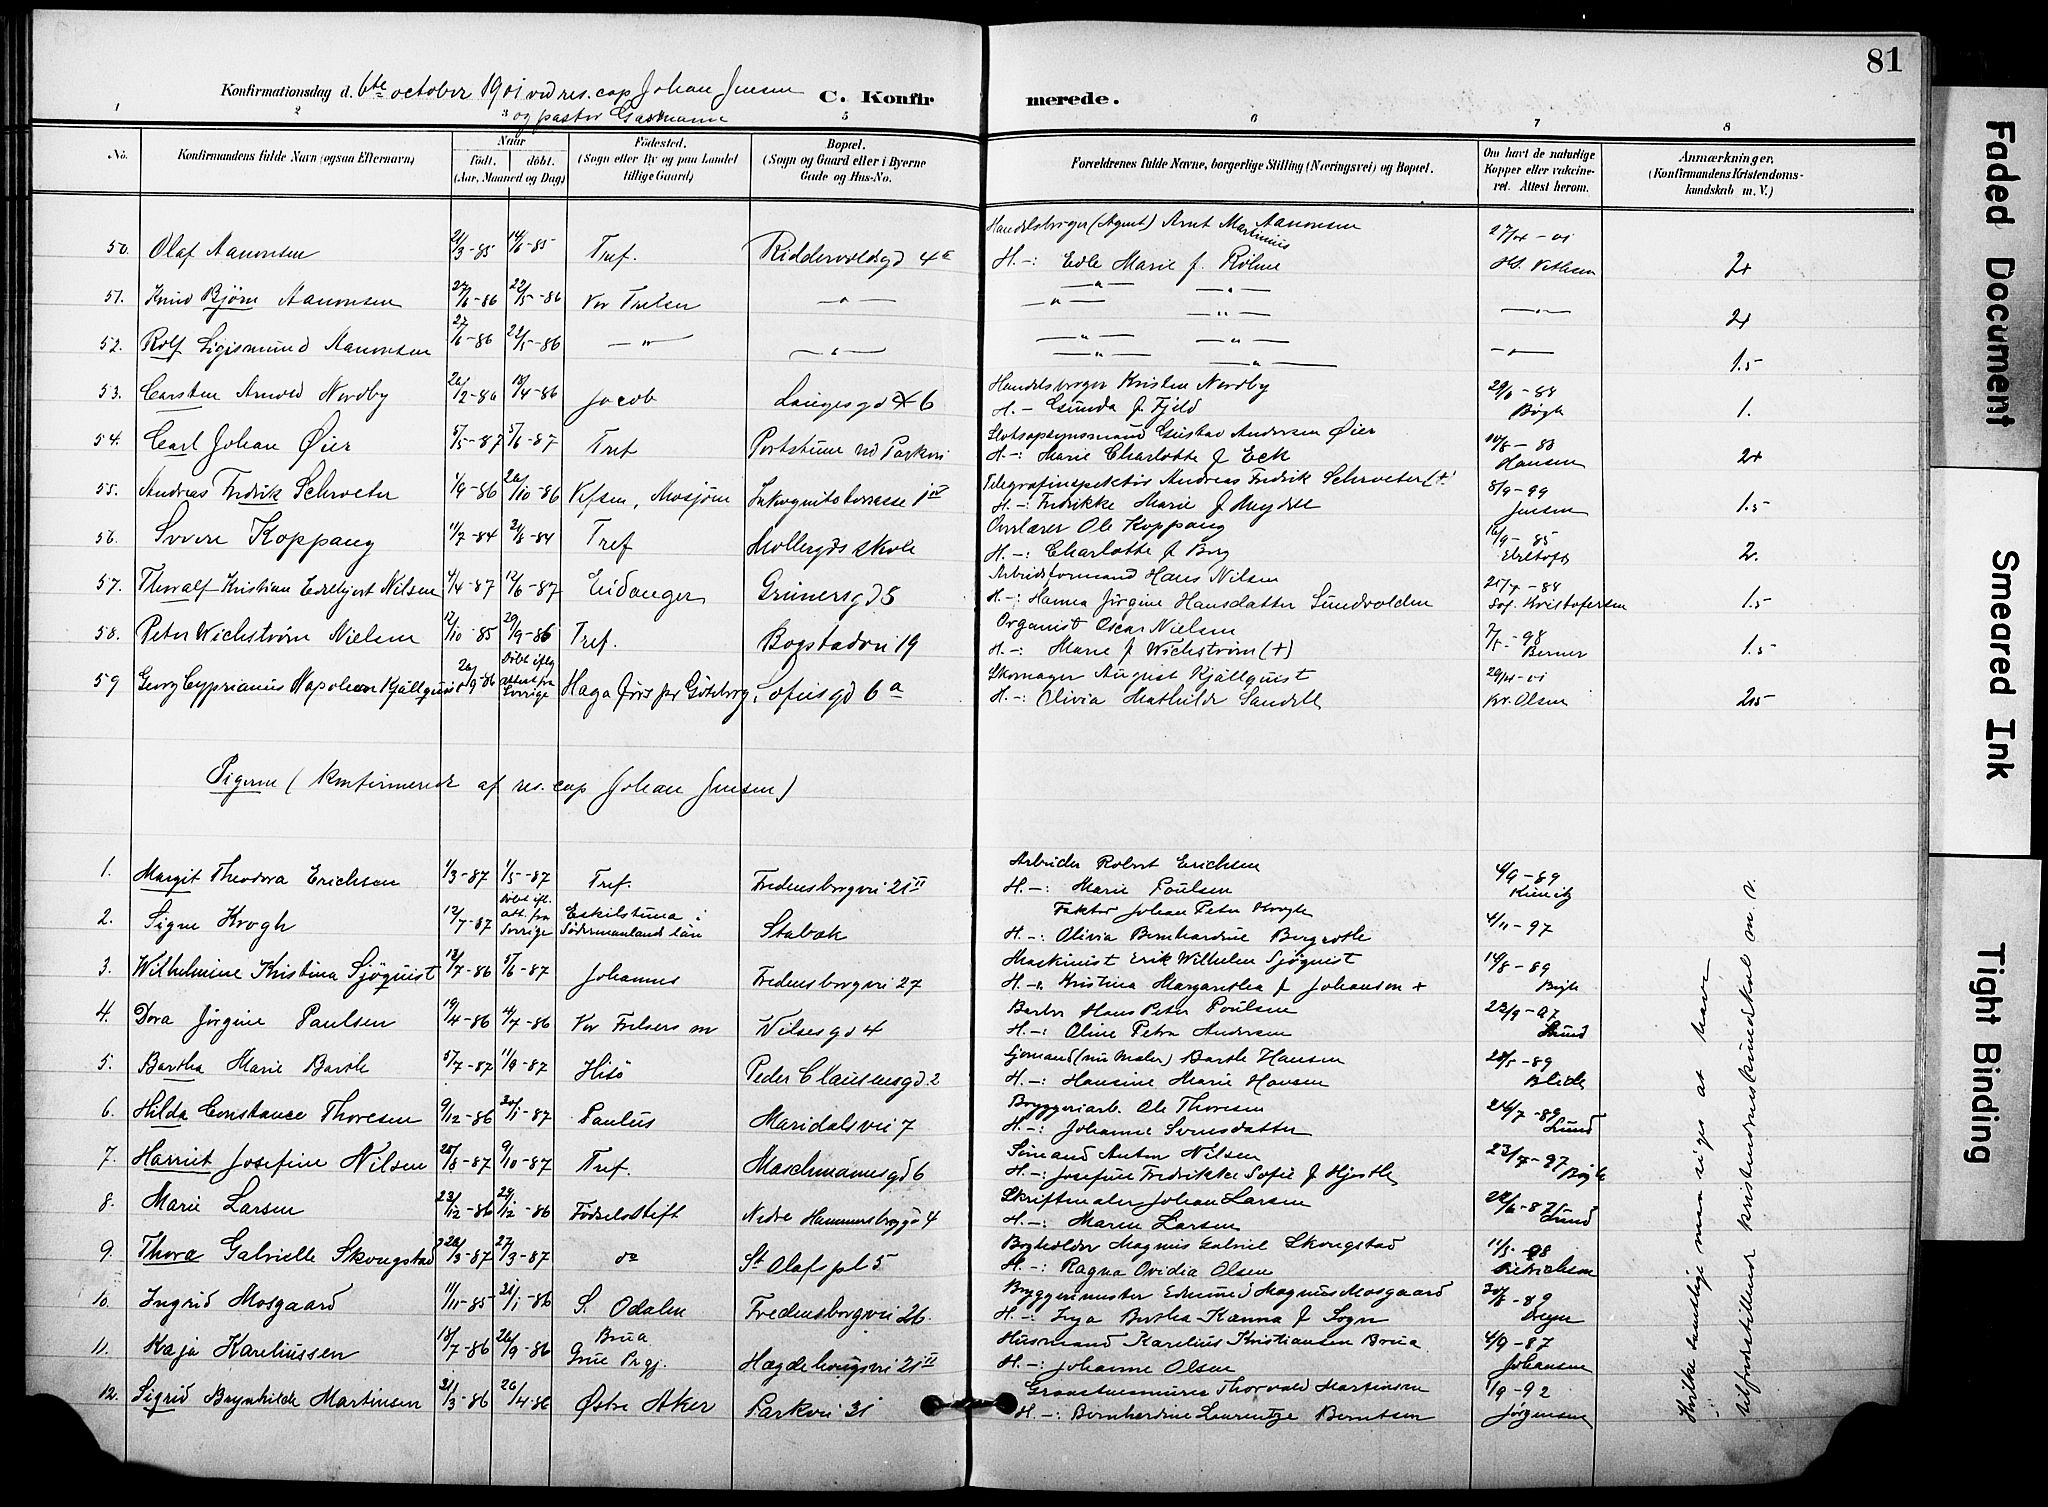 81
Konfirmationsdag d. 6te october 1901 ved res. cap Johan Jensen
og pastor
C. Konfirmerede.
1 2 3 5 6 7 8
No. Konfirmandens fulde Navn (ogsaa Efternavn) Naar født. døbt. (Aar, Maaned og Dag) Fødested. (Sogn eller By og paa Landet tillige Gaard) Bopæl. (Sogn og Gaard eller i Byerne Gade og Hus-No. Forældrenes fulde Navne, borgerlige Stilling (Næringsvei) og Bopæl. Om havt de naturlige Kopper eller vakcineret. Attest herom. Anmærkninger. (Konfirmandens Kristendomskundskab m. V.)
50. Olaf Aanonsen 21/3-85 14/6-85 Tref. Riddervoldsgd 4a Handelsborger (Agent) Arnt Martinius Aanonsen 27/4-01
H.-: Edle Marie f. Røhne 2+
51. Knud Bjørn Aanonsen 27/6-86 22/5-86 Vor Frelser —"— —"— —"— —"— 2+
52. Rolf Sigismund Aanonsen 27/6-86 22/5-86 —"— —"— —"— —"— —"— 1.5
53. Carsten Arnold Nordby 26/2-86 18/4-86 Jacob Langesgd 6 Handelsborger Kristen Nordby 29/6-88
H.- Gunda f. Fjeld Bøgh 1.
54. Carl Johan Øier 5/5-87 5/6-87 Tref Portstuen ved Parkvei Slotsopsynsmand Gustav Andersen Øier 10/8-88
H.-: Marie Charlotte f Eck Hansen 2+
55. Andreas Fredrik Schroeter 1/9-86 26/10-86 Vefsen, Mosjøen Inkognitoterrasse 1 IV Telegrafinspektør Andreas Fredrik Schroeter (+) 8/9-99
H.-: Fredrikke Marie f Jensen 1.5
56. Sverre Koppang 11/7-84 24/8-84 Tref Møllergds skole Overlærer Ole Koppang 16/9-85
H.-: Charlotte f Borg 2.
57. Thoralf Kristian Nilsen 4/4-87 12/6-87 Eidanger Grünersgd 5 Arbeidsformand Hans Nilsen 25/4-88
H.-: Hanna Jørgine Hansdatter Sundvolden Sof. Kristofersen 1.5
58. Peter Wichstrøm Nielsen 12/10-85 29/9-86 Tref. Bogstadvn 19 Organist Oscar Nielsen 2/5-98
H.-: Marie f Wichstrøm (+) Berner 1.5
59 Georg Cyprianus Napoleon Kjällquist 26/9-86 Døbt iflg attest fra Sverige Haga Götebörg Sofiesgd 6a Skomager August Kjällquist 29/4-01
H.-: Olivia Mathilde Sandell Kr. Olsen 2.5
Pigerne (konfirmerede af res. cap Johan Jensen)
1. Margit Theodora Erichsen 1/3-87 1/5-87 Tref. Fredensborgvei 21 II Arbeider Robert Erichsen 4/9-89
H.-: Marie Poulsen
2. Signe Krogh 12/7-87 Døbt ifl. att. fra Sverige Eskilstuna i Södermanlands län Stabæk Faktor Johan Peter Krogh 4/11-97
H.-: Olivia Bernhardine Bergroth
3. Wilhelmine Kristina Sjøquist 18/7-86 5/6-87 Johannes Fredensborgvei 27 Maskinist Erik Wilhelm Sjøquist 14/8-89
H.- Kristina Margaretha f Johansen + Bøgh
4. Dora Jørgine Paulsen 19/4-86 4/7-86 Vor Frelsers m Nilsesgd 4 Barber Hans Peter Poulsen 22/9-87
H.-: Oline Petra Andersen Lund
5. Bartha Marie Barth 5/7-87 11/9-87 Hisø Peder Clausensgd. 2 Sjømand (nu Maler) Barth Hansen 28/5-89
H.-: Hansine Marie Hansen Blich
6. Hilda Constance Thoresen 9/12-86 20/1-87 Paulus Maridalsvei 7 Bryggeriarb. Ole Thoresen 24/7-89
H.-: Johanne Svensdatter Lund
7. Harriet Josefine Nilsen 28/8-87 9/10-87 Tref. Maschmannsgd 6 Sømand Anton Nilsen 23/7-97
H.-: Josefine Fredrikke Sofie f Hjerth Bøgh
8. Marie Larsen 23/12-86 29/12-86 Fødselsstift Nedre Hammersborggd 4 Skriftmaler Johan Larsen 22/6-87
H.-: Maren Larsen Lund
9. Thora Gabrielle Skougstad 20/3-87 27/3-87 do St Olafs pl 5 Bogholder Magnus Gabriel Skougstad 11/5-98
H.-: Ragna Ovidia Olsen Didrichsen
10. Ingrid Mosgaard 11/11-85 21/1-86 S. Odalen Fredensborgvei 26. Bryggerimester Edmund Magnus Mosgaard 30/8-89
H.-: Inga Bertha Kanna f Sogn
11. Kaja Kareliussen 18/7-86 26/9-86 Brua Grue Prgj. Hægdehougsvei 21 II Husmand Karelius Kristiansen Brua 4/9-87
H.-: Johanne Olsen Johansen
12. Sigrid Brynhilde Martinsen 21/3-86 26/4-86 Østre Aker Parkvei 31 Graastensmurer Thorvald Martinsen 1/9-92
H.-: Bernhardine Laurentze Berntsen Jørgensen
Hvilke samtlige maa siges at have
tilfredsstillende kristendomskundskab m. v.
Faded Document
Smeared Ink
Tight Binding